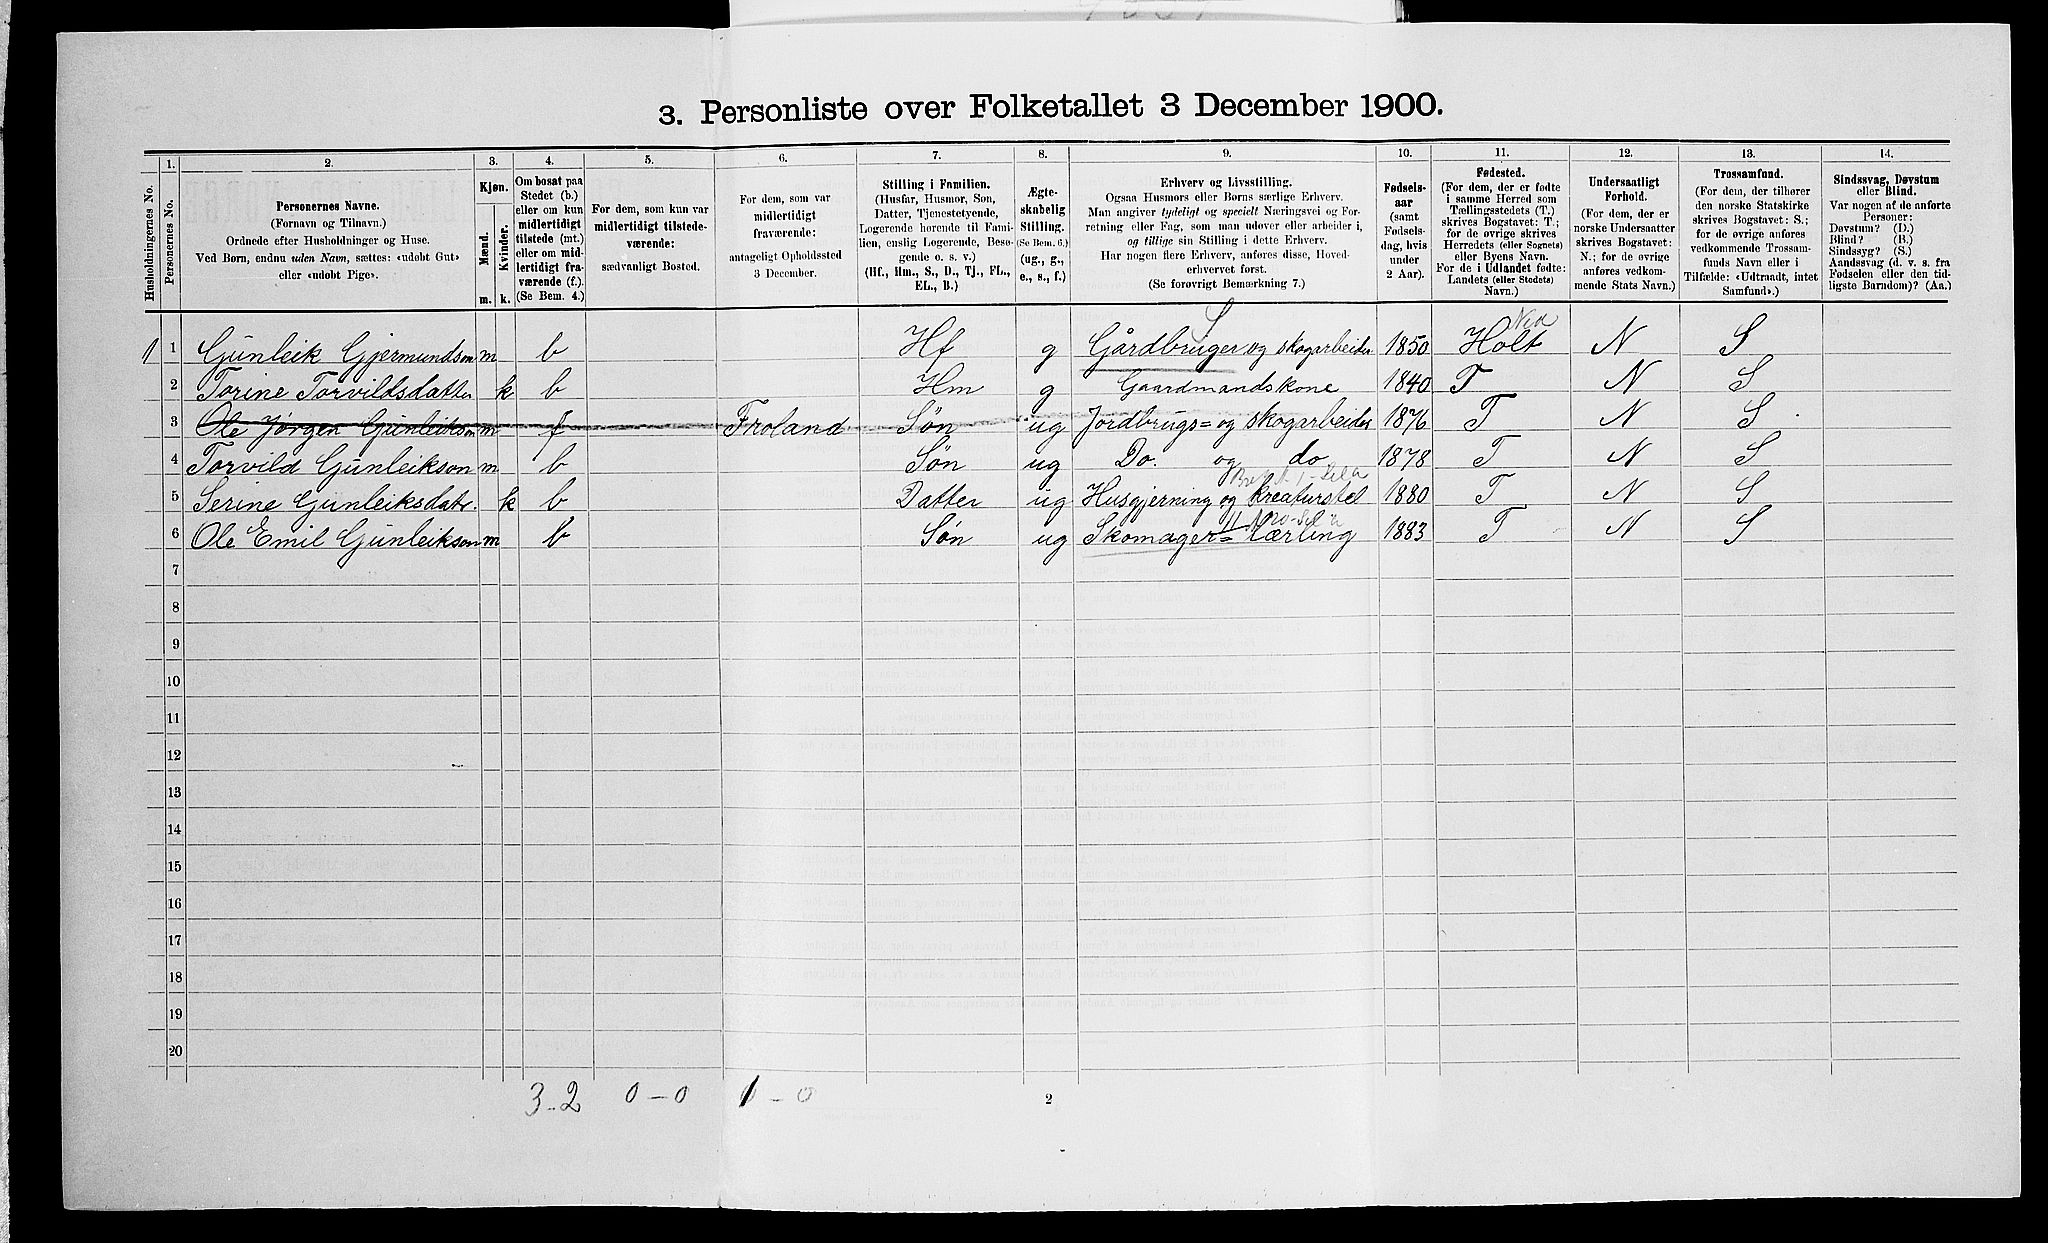 3. Personliste over Folketallet 3 December 1900.
Husholdningernes No.
1.
Personernes No.
2.
Personernes Navne.
(Fornavn og Tilnavn.)
Ordnede efter Husholdninger og Huse.
Ved Børn, endnu uden Navn, sættes: «udøbt Gut»
eller «udøbt Pige».
3.
Kjøn.
Mænd.
Kvinder.
m. k.
4.
Om bosat paa
Stedet (b.)
eller om kun
midlertidigt
tilstede (mt.)
eller om mid-
lertidigt fra-
værende (f.).
(Se Bem. 4.)
5.
For dem, som kun var
midlertidigt tilstede-
værende:
sædvanligt Bosted.
6.
For dem, som var
midlertidigt
fraværende:
antageligt Opholdssted
3 December.
7.
Stilling i Familien.
(Husfar, Husmor, Søn,
Datter, Tjenestetyende,
Logerende hørende til Fami-
lien, enslig Logerende, Besø-
gende o. s. v.)
(Hf., Hm., S., D., Tj., FL.,
EL., B.)
8.
Ægte-
skabelig
Stilling.
(Se Bem. 6.)
(ug., g.,
e., s., f.)
9.
Erhverv og Livsstilling.
Ogsaa Husmors eller Børns særlige Erhverv.
Man angiver tydeligt og specielt Næringsvei og For-
retning eller Fag, som man udøver eller arbeider i,
og tillige sin Stilling i dette Erhverv.
Har nogen flere Erhverv, anføres disse, Hoved-
erhvervet først.
(Se forøvrigt Bemærkning 7.)
10.
Fødsels-
aar
(samt
Fødsels-
dag, hvis
under
2 Aar).
11.
Fødested.
(For dem, der er fødte
i samme Herred som
Tællingsstedets (T.)
skrives Bogstavet: T.;
for de øvrige skrives
Herredets (eller Sognets)
eller Byens Navn.
For de i Udlandet fødte:
Landets (eller Stedets)
Navn.)
12.
Undersaatligt
Forhold.
(For dem, der er
norske Undersaatter
skrives Bogstavet:
N.; for de øvrige
anføres vedkom-
mende Stats Navn.)
13.
Trossamfund.
(For dem, der tilhører
den norske Statskirke
skrives Bogstavet: S.;
for de øvrige anføres
vedkommende Trossam-
funds Navn eller i
Tilfælde: «Udtraadt, intet
Samfund».)
14.
Sindssvag, Døvstum
eller Blind.
Var nogen af de anførte
Personer:
Døvstum? (D.)
Blind? (B.)
Sindssyg? (S.)
Aandssvag (d. v. s. fra
Fødselen eller den tid-
ligste Barndom)? (Aa.)
S Ned
1 1 Gunleik Gjermundson m b Hf g Gårdbruger og skogarbeider 1850 Holt N S
2 Torine Torvildsdatter k b Hm g Gaardmandskone 1840 T N S
3 Ole Jørgen Gunleikson m f Froland Søn ug Jordbrugs= og skogarbeider 1876 T N S
4 Torvild Gunleikson m b Søn ug Do. og do 1878 T N S
5 Serine Gunleiksdatr. k b Datter ug Husgjerning og kreaturstel 1880 T N S
6 Ole Emil Gunleikson m b Søn ug Skomager=lærling 1883 T N S
7
8
9
10
11
12
13
14
15
16
17
18
19
20
3-2 0-0 1-0
2